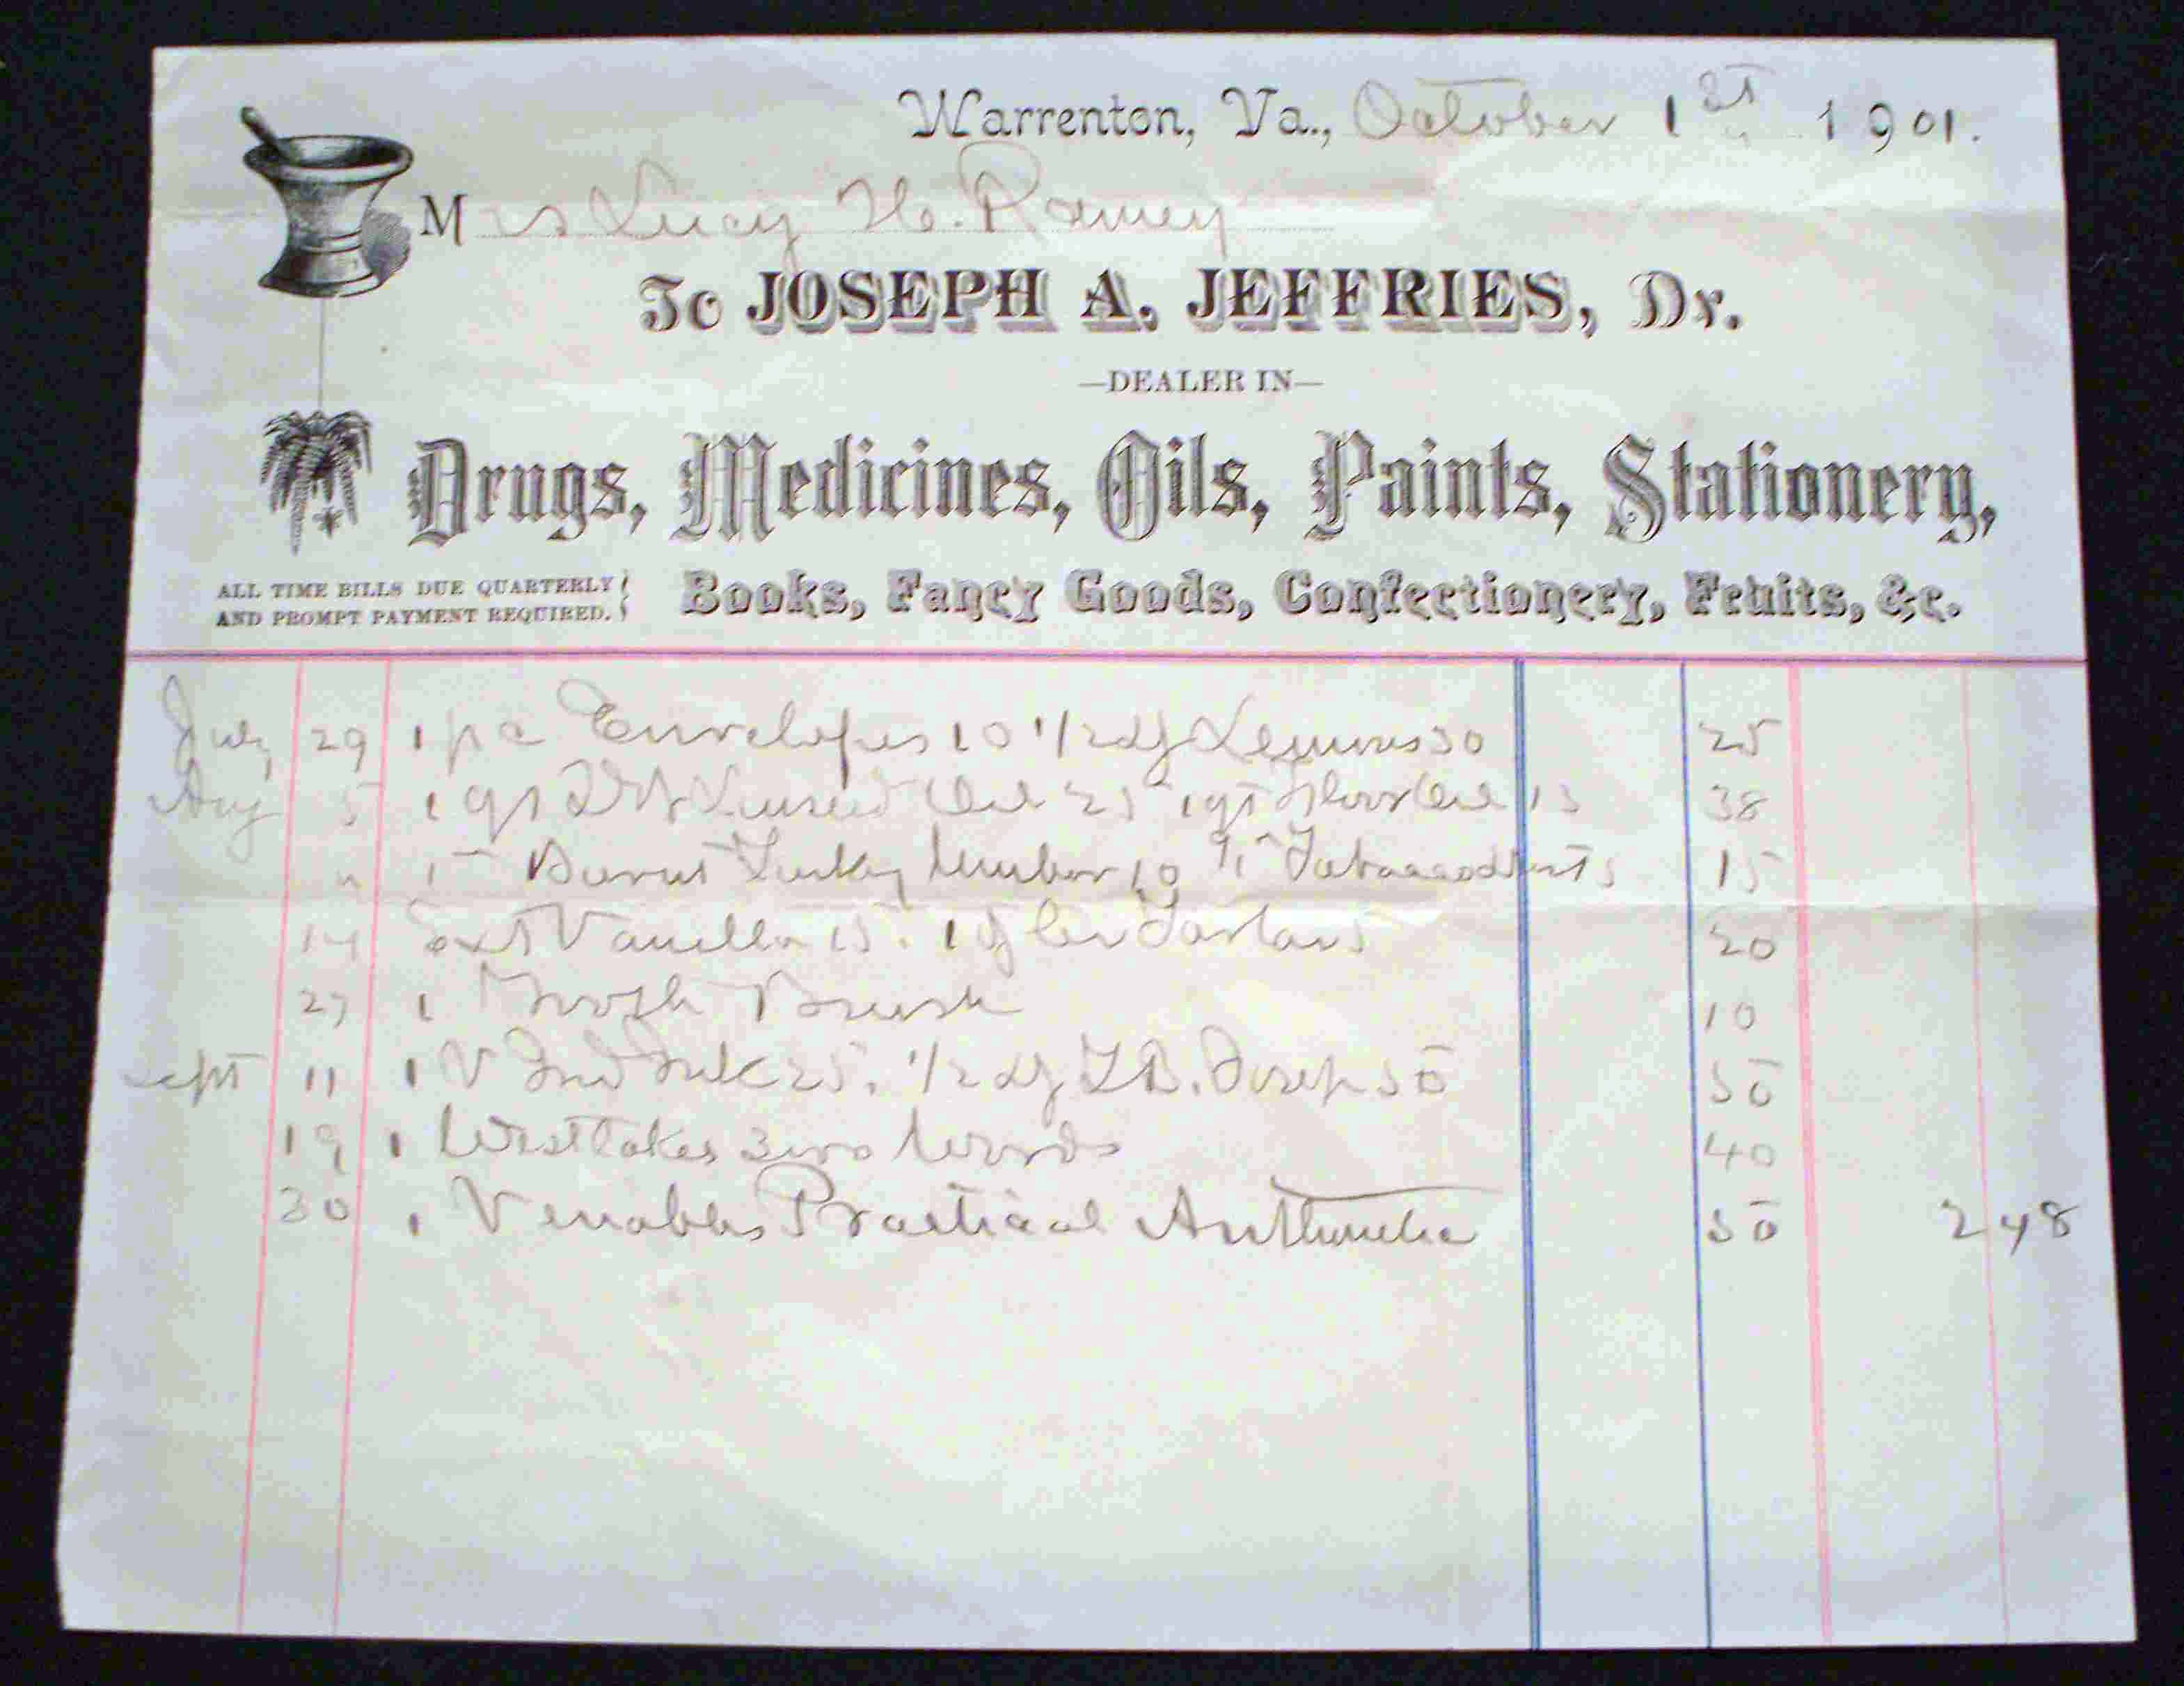 Warrenton, Va., October 1st 1901.
Mrs Lucy H. Ramey
To JOSEPH A. JEFFRIES, Dr.
—DEALER IN—
Drugs, Medicines, Oils, Paints, Stationery,
ALL TIME BILLS DUE QUARTERLY
AND PROMPT PAYMENT REQUIRED.
Books, Fancy Goods, Confectionery, Fruits, &c.
July 29 1 pc Envelopes 10 1/2 dz 25
Aug 5 1 qt Linseed Oil 25 1 qt Floor Oil 13 38
" 1 Burnt Turkey Umber 10 15
14 Ext Vanilla 15. 20
27 1 Tooth Brush 10
Sept 11 1 25. 1/2 dz 50
19 1 Westlakes 3000 Words 40
30 1 Venables Practical Arithmetic 50 248